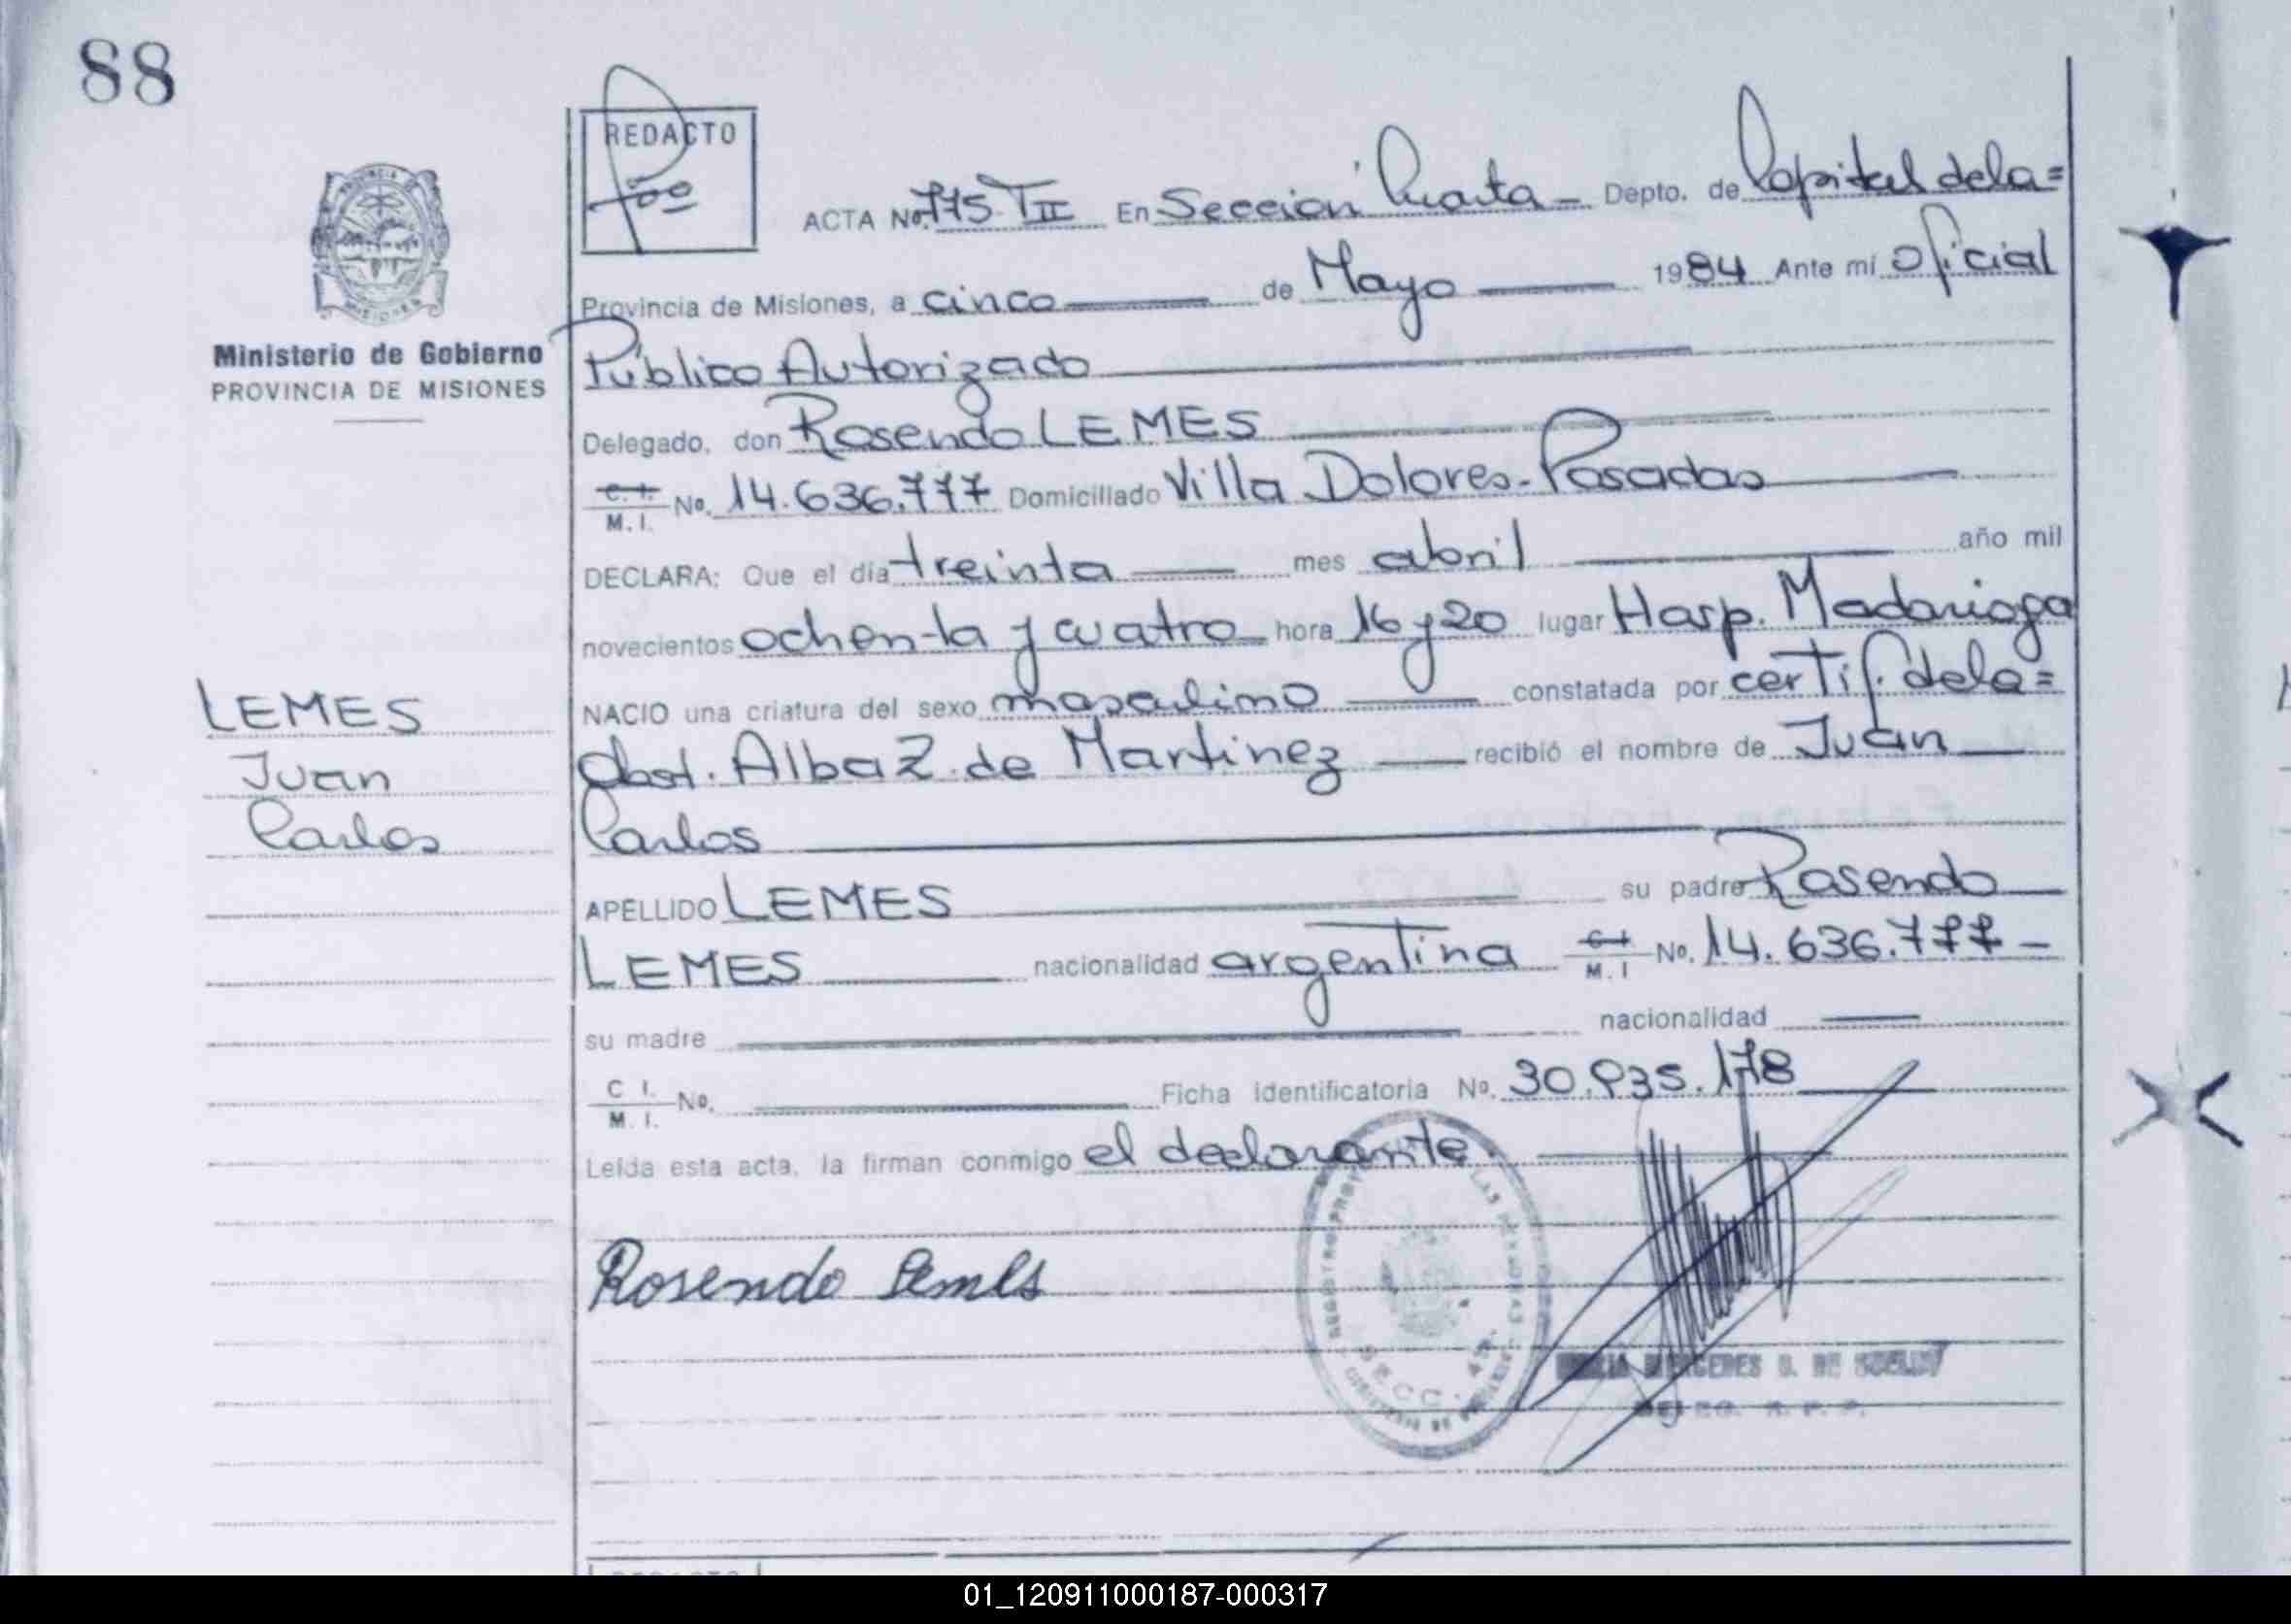 88
REDACTO
ACTA No. 775 TII En Sección Cuarta - Depto. de Capital de la=
Provincia de Misiones, a cinco de Mayo 1984 Ante mí Oficial
Ministerio de Gobierno
PROVINCIA DE MISIONES
Público Autorizado
Delegado, don Rosendo LEMES
C. I. M. I. No. 14.636.777 Domiciliado Villa Dolores-Posadas
DECLARA: Que el día treinta mes abril año mil
novecientos ochenta y cuatro hora 16 y 20 lugar Hosp. Madariaga
NACIO una criatura del sexo masculino constatada por certif. de la=
LEMES
Juan
Carlos
Obst. Alba Z. de Martinez recibió el nombre de Juan
Carlos
APELLIDO LEMES su padre Rosendo
LEMES nacionalidad argentina C.I M.I No. 14.636.777-
su madre nacionalidad
C I. M. I. No. Ficha identificatoria No. 30.935.178
Leída esta acta, la firman conmigo el declarante.
Rosendo Lemes
SECC. 4ta.
MERCEDES
01_120911000187-000317